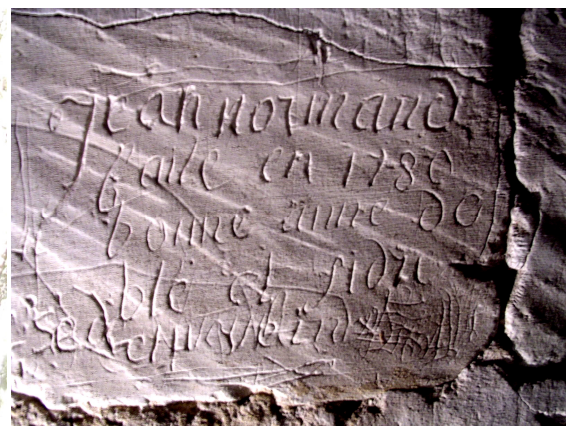 jean normand
faite en 1780
bonne anne de
ble et sidre